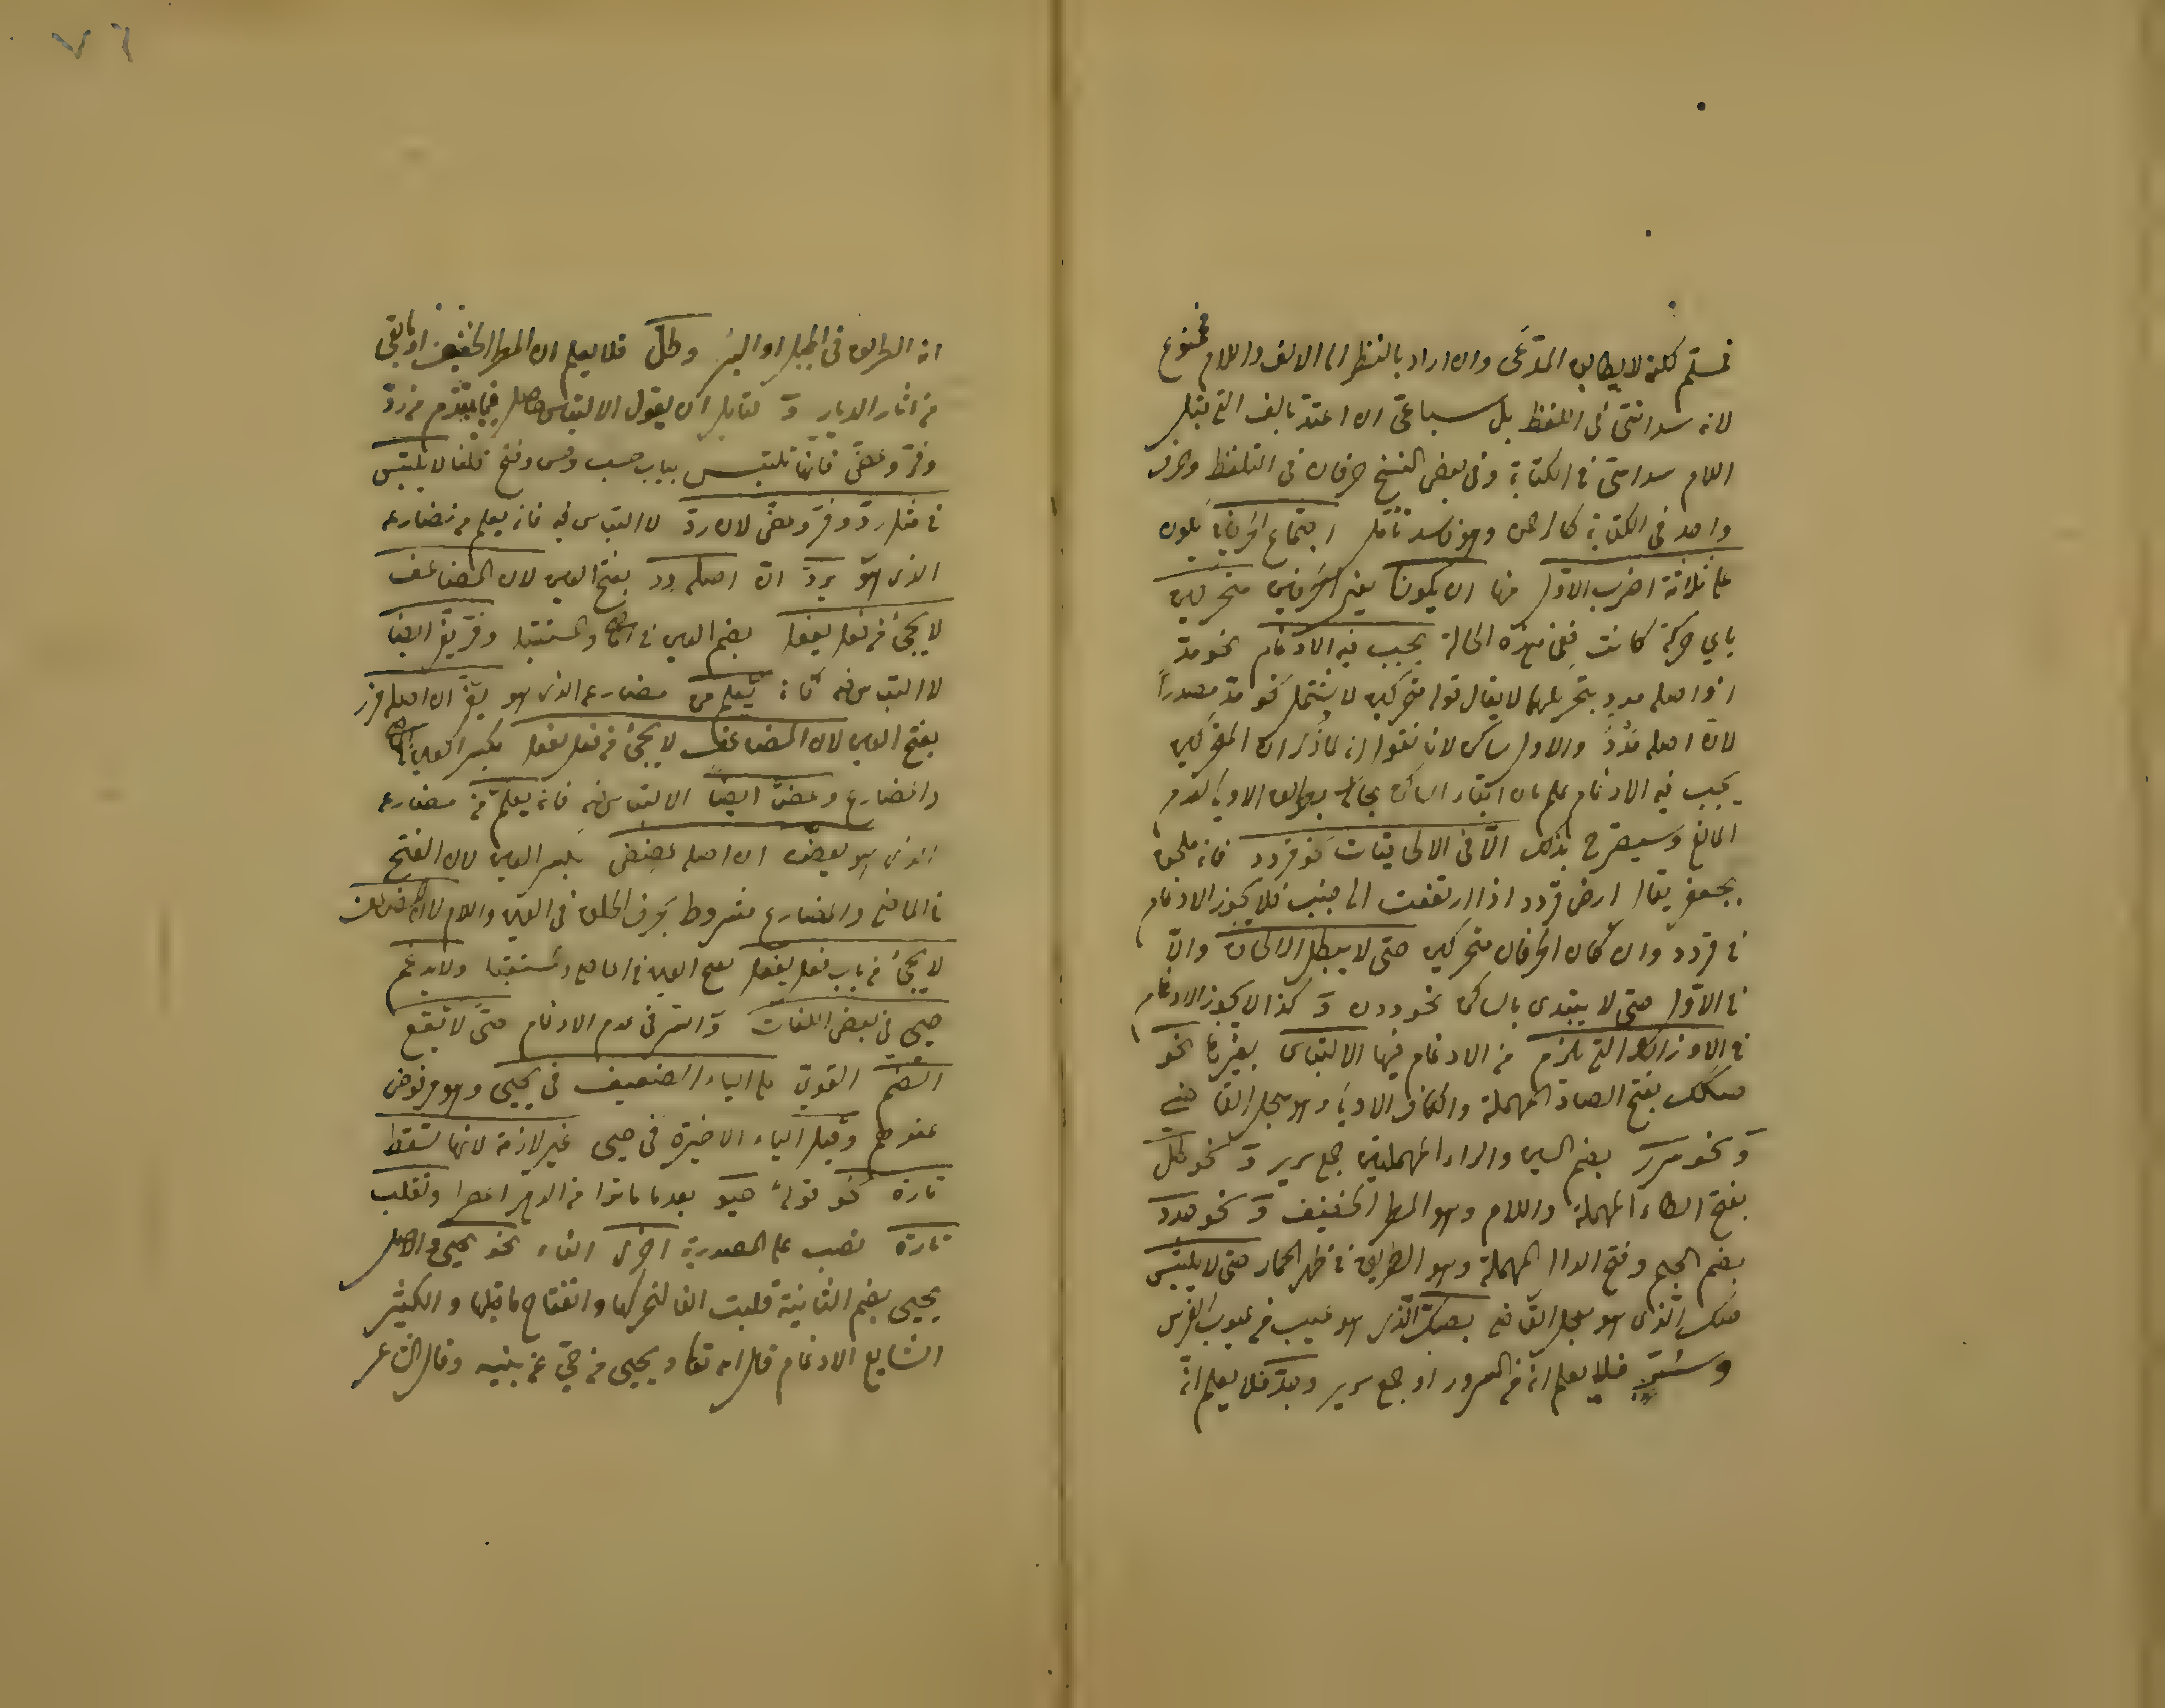 فمسلم لكنه لا يطابق المدعى وان اراد بالنظر الى الالف واللام فممنوع
لانه سداسى فى اللفظ بل سباعى ان اعتد بالف التى قبل
اللام سداسى فى الكتابة وفى بعض النسخ حرفان فى التلفظ وحرف
واحد فى الكتابة كالرحمن وهو فاسد تأمل اجتماع الحرفين يكون
على ثلاثة اضرب الاول منها ان يكونا يعنى الحرفين متحركين
باي حركة كانت ففى هذه الحالة يجب فيه الادغام نحو مدّ
اذ اصله مدد بتحريكهما لا يقال قوله متحركين لا يشتمل نحو مدّ مصدراً
لانّ اصله مَدْدٌ والاول ساكن لانا نقول انه لما ذكر ان المتحركين
يجب فيه الادغام علم ان ابقاء الساكن بحاله بطريق الاولى لعدم
المانع وسيصرح بذلك الّا فى الالحاقيات نحو قردد فانه ملحق
بجعفر يقال ارض قردد اذا ارتفعت الى جنب فلا يجوز الادغام
فى قردد وان كان الحرفان متحركين حتى لا يبطل الالحاق والّا
فى الاول حتى لا يبتدى بالساكن نحو ددن وَ كذا لا يجوز الادغام
فى الاوزان التى يلزم من الادغام فيها الالتباس بغيرها نحو
صكك بفتح الصاد المهملة والكاف الاولى وهو سجل القاضى
وَ نحو سرر بضم السين والراء المهملتين جمع سرير وَ نحو طلل
بفتح الطاء المهملة واللام وهو المطر الخفيف وَ نحو جدد
بضم الجيم وفتح الدال المهملة وهو الطريق فى ظهر الحمار حتى لا يلتبس
صكّ الّذى هو سجل القاضى بصكك الّذى هو عيب فى عيوب الفرس
وسُرّ فلا يعلم انه من السرور او جمع سرير وجدّ فلا يعلم انه
٧٦
انه الطريق فى الجبل او البئر وطلّ فلا يعلم ان المطر الخفيف او ما بقى
من اثار الديار وَ لقائل ان يقول الالتباس حاصل فيما يقدم من ردّ
وفرّ وعضّ فانها تلتبس بباب حسب وحسن وفتح قلنا لا يلتبس
فى مثل ردّ وفرّ وعضّ لان ردّ لا التباس فيه فانه يعلم من مضارعه
الذى هو يردّ انّ اصله ردد بفتح العين لان المضاعف
لا يجئ من فعل يفعل بضم العين فى الماضى والمستقبل وفرّ يفرّ ايضا
لا التباس فيه فانه يعلم من مضارعه الذى هو يفرّ ان اصله فرر
بفتح العين لان المضاعف لا يجئ من فعل يفعل بكسر العين فى الماضى
والمضارع وعضّ ايضا لا التباس فيه فانه يعلم من مضارعه
الذى هو يعضّ ان اصله عضض بكسر العين لان الفتح
فى الماضى والمضارع مشروط بحرف الحلق فى العين واللام لان المضاعف
لا يجئ من باب فعل يفعل بفتح العين فى الماضى والمستقبل ولا يدغم
حيى فى بعض اللغات والسر فى عدم الادغام حتى لا تقع
الضم القوىّ على الياء الضعيف فى يحيى وهو مرفوض
عندهم وقيل الياء الاخيرة فى حيى غير لازمة لانها تسقط
تارة نحو قوله حيو بعدما ماتوا من الدهر اعصرا وتقلب
تارة نصب على المصدرية اخرى الفا نحو يحيى والاصل
يحيى بضم الثانية قلبت الفا لتحركها وانفتاح ما قبلها والكثير
الشايع الادغام قال الله تعالى ويحيى من حيّ عن بينة وقال الشاعر